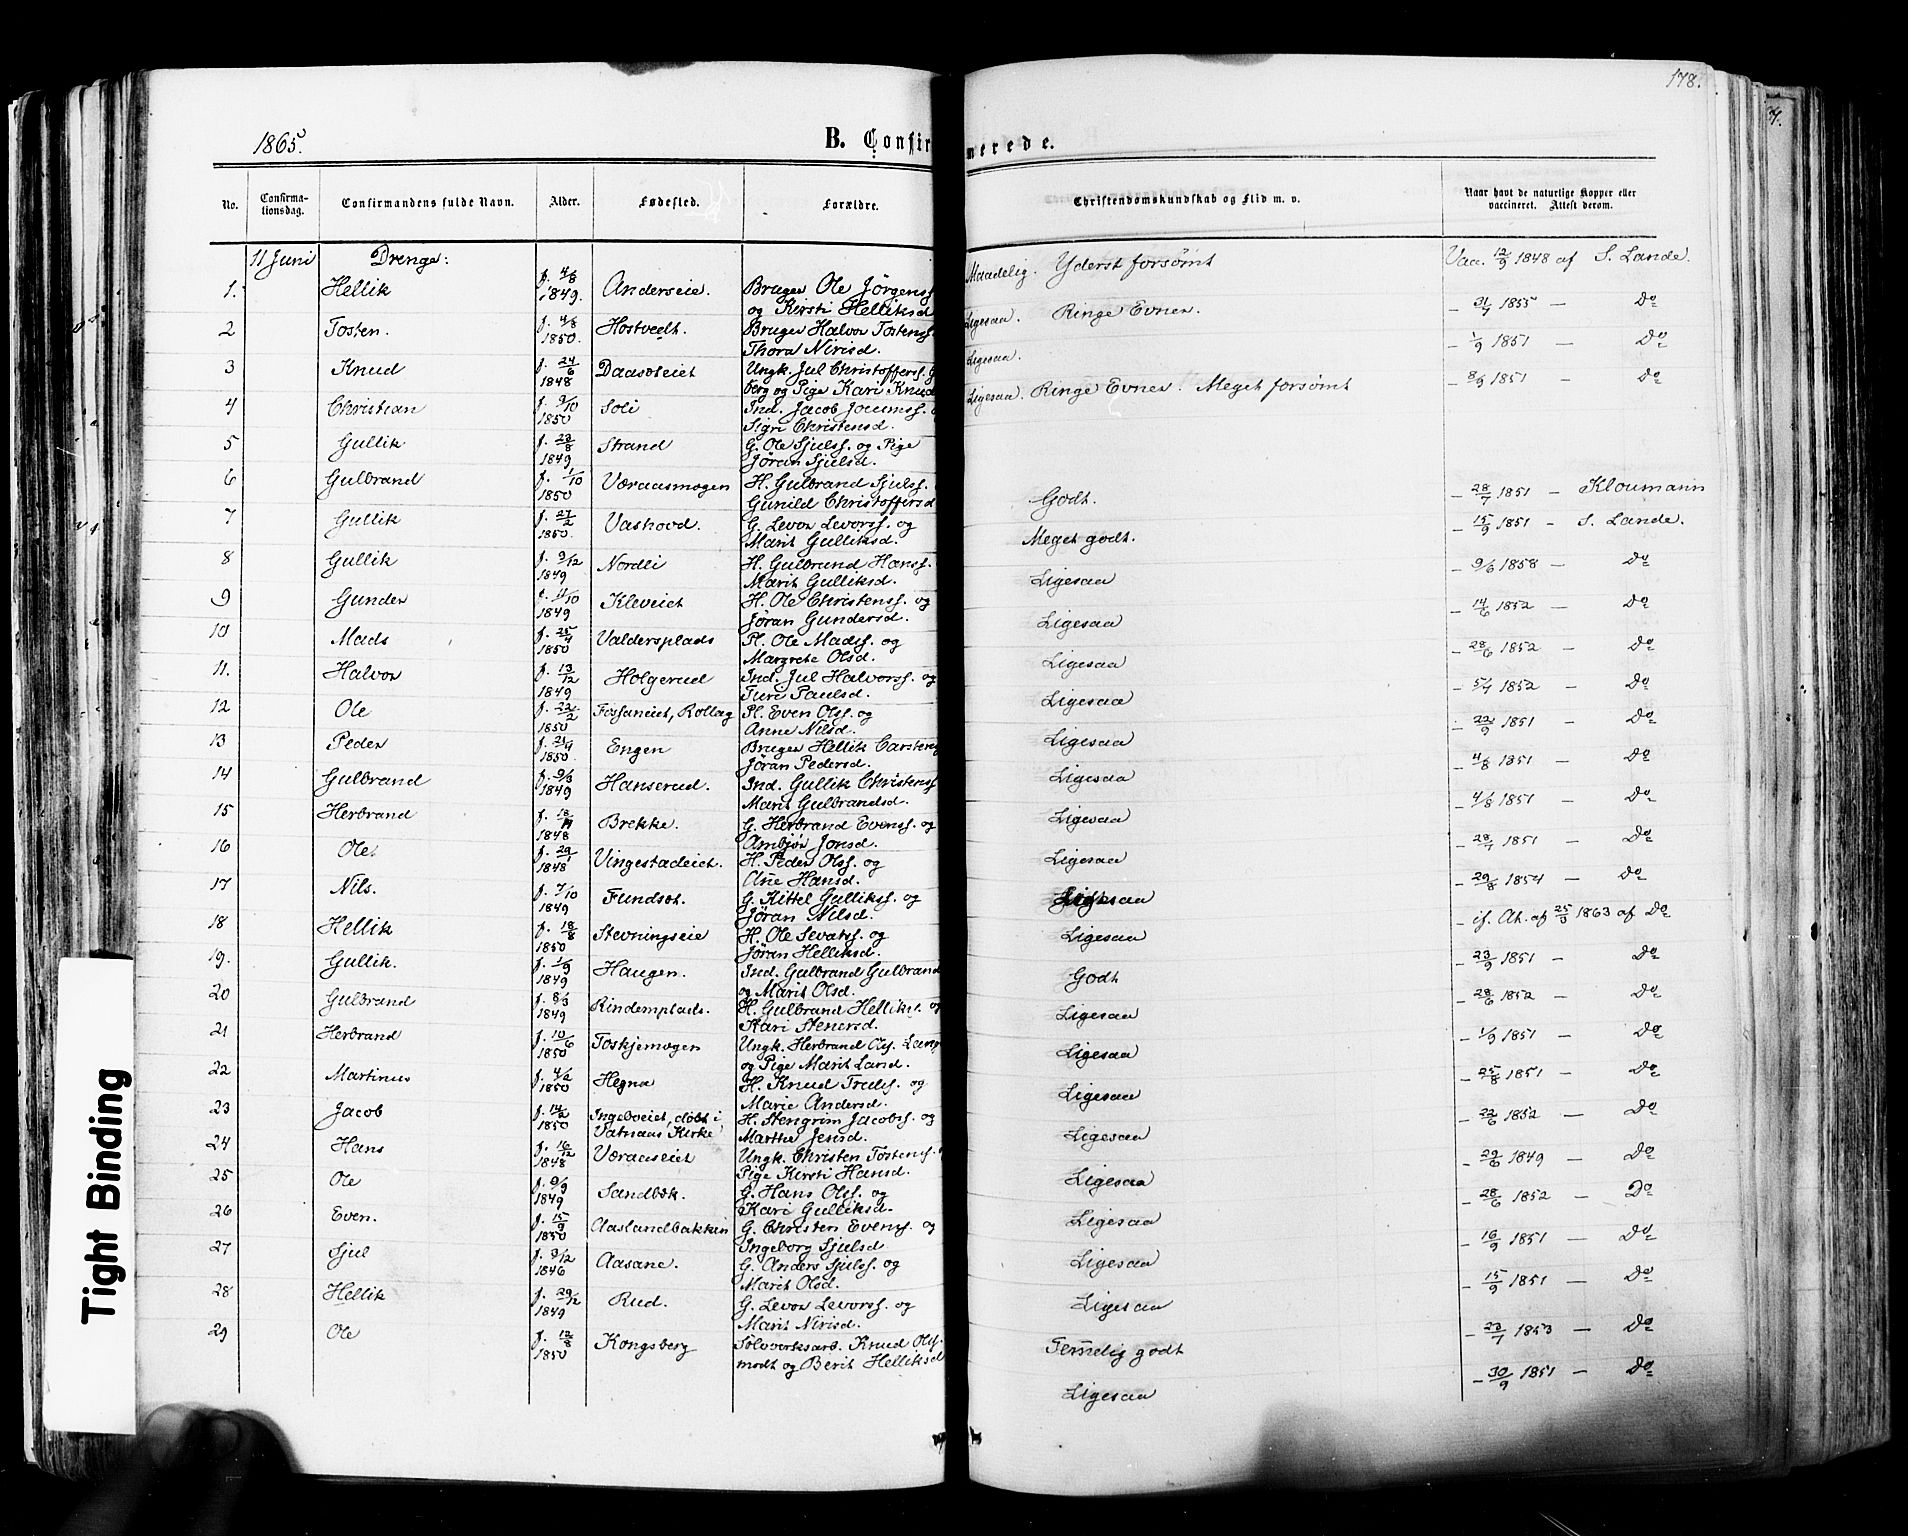 178.
1865.
B. Confir merede.
No. Confirma- tionsdag. Confirmandens fulde Navn. Alder. Fødested. Forældre. Christendomskundskab og Flid m. v. Naar havt de naturlige Kopper eller vaccineret. Attest derom.
11 Juni Drenge:
1. Hellik f. 4/8 1849. Anderseie. Bruger Ole Jørgenss. og Kirsti Helliksd Maadelig. Yderst forsømt Vac. 12/9 1848 af S. Lande.
2 Tosten. f. 4/8 1850. Hostvedt. Bruger Halvor Tostenss. Thora Nirisd. Ligesaa. Ringe Evner. - 31/7 1855 - Do
3 Knud f. 24/6 1848 Daasæteiet Ungk. Jul Christoffers. berg og Pige Kari Knud Ligesaa. - 1/9 1851 - Do
4 Christian f. 9/10 1850 Soli Ind. Jacob Joeumss. Sigri Christensd. Ligesaa. Ringe Evner. Meget forsømt - 8/9 1851 - Do
5 Gullik f. 23/8 1849 Strand G. Ole Sjulss. og Pige Jøran Sjulsd.
6 Gulbrand f. 1/10 1850 Væraasmogen H. Gulbrand Sjulss. Gunild Christoffersd Godt. - 28/7 1851 - Kloumann
7 Gullik f. 27/2 1850. Vashovd. G. Levor Levorss. og Marit Gulliksd. Meget godt. - 15/9 1851 - S. Lande.
8 Gullik f. 9/12 1849 Nordli H. Gulbrand Hanss. Marit Gulliksd. Ligesaa - 9/6 1858 - Do
9 Gunder f. 11/10 1849 Kleveiet H. Ole Christenss. og Jøran Gundersd. Ligesaa - 14/6 1852 - Do
10 Mads f. 25/4 1850 Valdersplads Pl. Ole Madss. og Margrete Olsd. Ligesaa - 28/6 1852 - Do
11. Halvor f. 13/12 1849 Holgerud Ind. Jul Halvorss. og Turi Paulsd. Ligesaa - 5/7 1852 - Do
12 Ole f. 22/2 1850 Fosfaneiet, Rollag Pl. Even Olss. og Anne Nilsd. Ligesaa - 22/9 1851 - Do
13 Peder f. 21/9 1850. Engen Bruger Hellik Carstens Jøran Pedersd. Ligesaa - 4/8 1851 - Do
14 Gulbrand f. 9/3 1849 Hanserud. Ind. Gullik Christenss. Marit Gulbrandsd. Ligesaa - 4/8 1851 - Do
15 Herbrand f. 18/11 1848 Brekke. G. Herbrand Evenss. og Ambjør Jonsd. Ligesaa - 28/7 1851 - Do
16 Ole f. 29/1 1848 Vingestadeiet. H. Peder Olss. og Ane Hansd. Ligesaa - 29/8 1854 - Do
17 Nils. f. 7/10 1849 Fundsæt. G. Kittel Gullikss. og Jøran Nilsd. Ligesaa - if. At. af 25/3 1863 af Do
18 Hellik f. 18/8 1850 Stevningseie H. Ole Sevatss. og Jøran Helliksd. Ligesaa - 23/9 1851 - Do
19. Gullik. f. 1/9 1849 Haugen. Ind. Gulbrand Gulbrand og Marit Olsd. Godt - 28/6 1852 - Do
20 Gulbrand f. 8/3 1849 Rindemplads. H. Gulbrand Helliks. og Kari Stenersd. Ligesaa - 1/9 1851 - Do
21 Herbrand f. 10/6 1850 Toskjemogen Ungk. Herbrand Olss. Lang og Pige Marit Land. Ligesaa - 25/8 1851 - Do
22 Martinus f. 4/2 1850 Hegna H. Knud Tredss. og Marie Andersd. Ligesaa - 22/6 1852 - Do
23 Jacob f. 14/2 1850 Ingelveiet, døbt i Vatnaas Kirke H. Stengrim Jacobss. og Marthe Jensd. Ligesaa - 29/6 1849 - Do
24 Hans f. 16/12 1848 Væraaseiet Ungk. Christen Tostens. Pige Kirsti Hansd. Ligesaa - 28/6 1852 - Do
25 Ole f. 9/9 1849 Sandbæk. G. Hans Olss. og Kari Gulliksd. Ligesaa - 16/9 1851 - Do
26 Even. f. 15/9 1850 Aaslandbakken G. Christen Evenss. og Ingeborg Sjulsd Ligesaa - 15/9 1851 - Do
27 Sjul f. 3/12 1846 Aasane. G. Anders Sjulss. og Marit Olsd. Ligesaa - 23/7 1853 - Do
28 Hellik f. 29/12 1849 Rud. G. Levor Levorss. og Marit Nirisd. Temelig godt - 30/9 1851 - Do
29 Ole f. 12/8 1850 Kongsberg Sølvverksarb. Knud Olss. modt og Berit Helliksd Ligesaa
Tight Binding